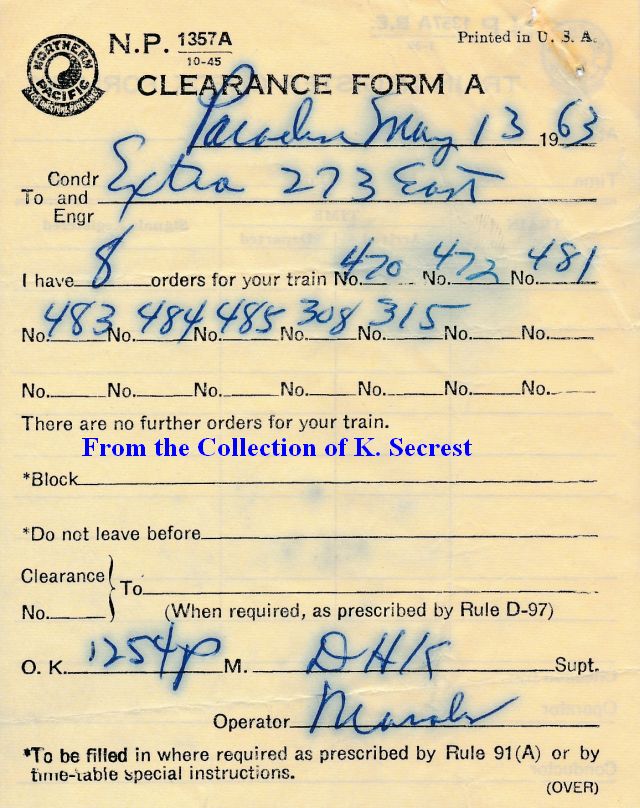 NORTHERN PACIFIC
YELLOWSTONE PARK LINE
N.P. 1357A
10-45
Printed in U. S. A.
CLEARANCE FORM A
Paradise May 13 1963
Condr
To and Extra 273 East
Engr
I have 8 orders for your train No. 470 No. 472 No. 481
No. 483 No. 484 No. 485 No. 308 No. 315 No. No.
No. No. No. No. No. No. No.
There are no further orders for your train.
From the Collection of K. Secrest
*Block
*Do not leave before
Clearance
No. } To
(When required, as prescribed by Rule D-97)
O. K. 1254p M. DHK Supt.
Operator
*To be filled in where required as prescribed by Rule 91(A) or by
time-table special instructions.
(OVER)